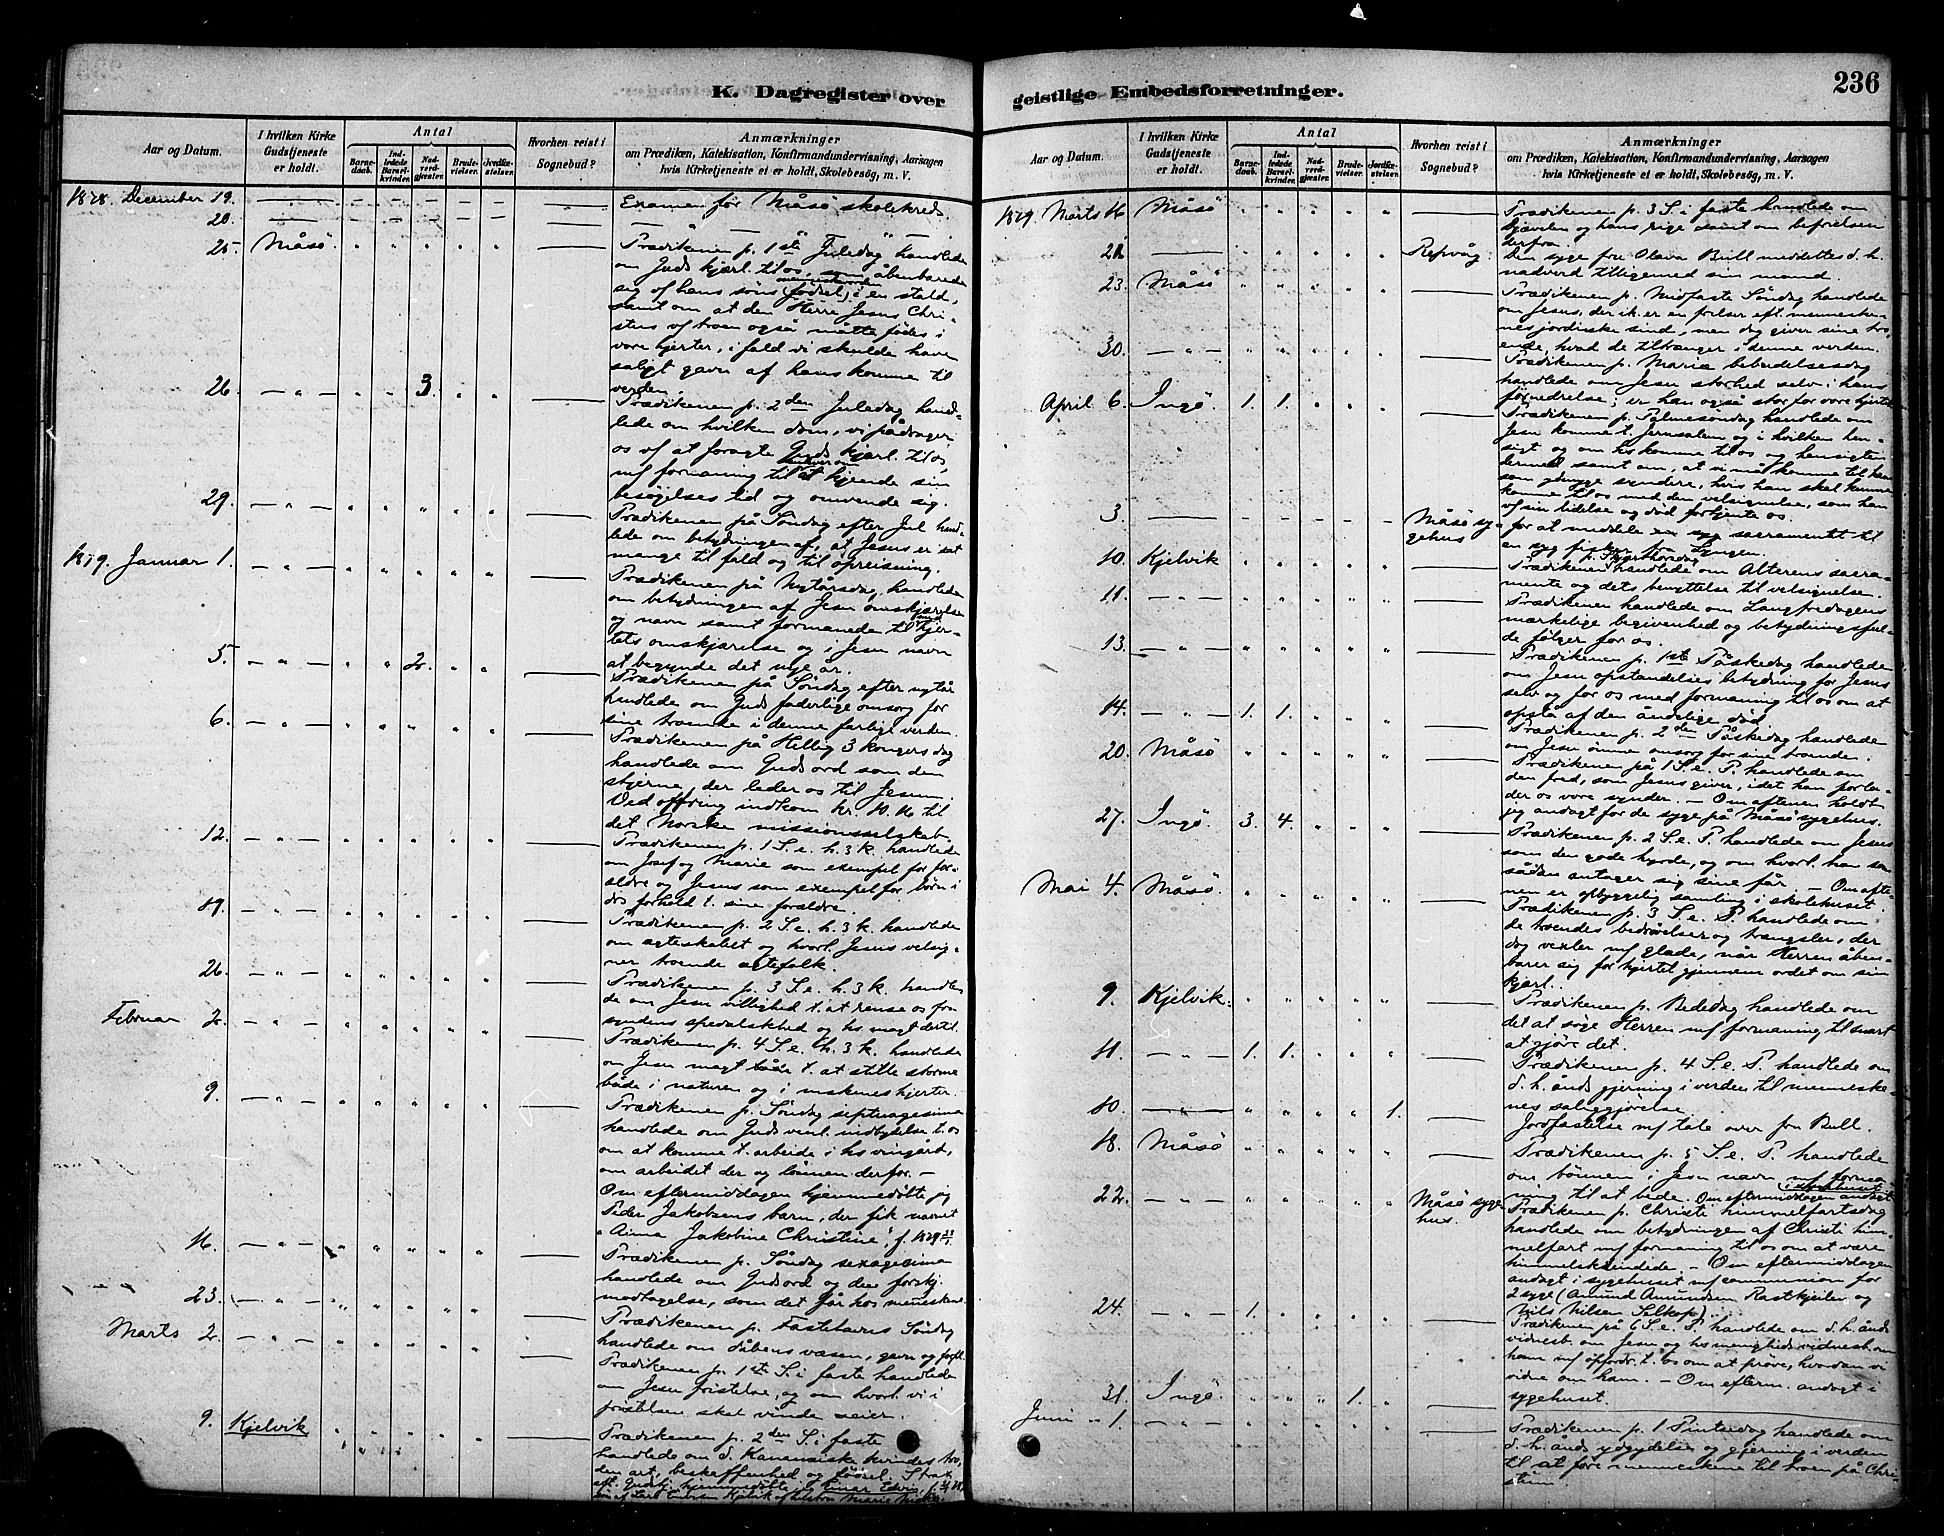 236
K. Dagregister over
geistlige Embedsforretninger.
Aar og Datum.
I hvilken Kirke Gudstjeneste er holdt.
Antal
Barnedaab.
Indledede Barselkvinder.
Nadverdgjester.
Brudevielser.
Jordfæstelser.
Hvorhen reist i Sognebud?
Anmærkninger
om Prædiken, Katekisation, Konfirmandundervisning, Aarsagen
hvis Kirketjeneste ei er holdt, Skolebesøg, m. V.
1878. December 19. Examen for Måsø skolekreds.
20. — " — " —
25. Måsø. Prædikenen p. 1ste Juledag handlede
om Guds kjærl. til os, som åbenbarede
sig vf hans søns menneskevorden (fødsel) i en stald,
samt om at den Herre Jesus Chri-
stus vf troen også måtte fødes i
vore hjerter, ifald vi skulde have
saligt gavn af hans komme til
verden.
26. — " — 3. Prædikenen p. 2den Juledag hand-
lede om hvilken dom, vi pådrager
os vf at foragte Guds kjærl. til os,
mf formaning til at kjende sin
besøgelses tid og omvende sig.
29. — " — Prædikenen på Søndag efter Jul hand-
lede om betydningen af, at Jesus er sat
mange til fald og til opreisning.
1879. Januar 1. — " — Prædikenen på Nytårsdag handlede
om betydningen af Jesu omskjærelse
og navn samt formanede til hjer-
tets omskjærelse og i Jesu navn
at begynde det nye år.
5. — " — 2. Prædikenen på Søndag efter nytår
handlede om Guds faderlige omsorg for
sine troende i denne farlige verden.
6. — " — Prædikenen på Hellig 3 Kongers dag
handlede om Guds ord som den
stjerne, der leder os til Jesum.
Ved offring indkom kr. 10.16 til
det Norske missionsselskab.
12. — " — Prædikenen p. 1 S. e. h. 3 k. handlede
om Josef og Marie som exempel for for-
ældre og Jesus som exempel for børn i
ds forhold t. sine forældre.
19. — " — Prædikenen p. 2 S. e. h. 3 k. handlede
om ægteskabet og hvorl. Jesus velsig-
ner troende ægtefolk.
26. — " — Prædikenen p. 3 S. e. h. 3 k. handle-
de om Jesu villighed t. at rense os fra
syndens spedalskhed og hs magt dertil.
Februar 2. — " — Prædikenen p. 4 S. e. h. 3 k. handlede
om Jesu magt både t. at stille storme
både i naturen og i mskenes hjerter.
9. — " — Prædikenen p. Søndag septuagesima
handlede om Guds venl. indbydelse t. os
om at komme t. arbeide i hs vingård,
om arbeidet der og lønnen derfor. —
Om eftermiddagen hjemmedøbte jeg
Peder Jakobsens barn, der fik navnet
"Anna Jakobine Christine" f. 1879
16. — " — Prædikenen p. Søndag sexagesima
handlede om Guds ord og den forskj.
modtagelse, som det får hos menneskene.
23. — " — Prædikenen p. Fastelavns Søndag
handlede om dåbens væsen, gavn og
Marts 2. — " — Prædikenen p. 1ste S. i faste handlede
om Jesu fristelse, og om hvorl. vi i
fristelsen skal vinde seier.
9. Kjelvik Prædikenen p. 2den S. i faste
handlede om d. Kananæiske kvindes tro,
den art, beskaffenhed og Strax
eft. hjemmedøbte Einar Edvin,
Kjelvik
1879 Marts 16. Måsø Prædikenen p. 3 S. i faste handlede om
djævelen og hans rige samt om befrielsen
derfra.
21. Repvåg. Den syge fru Olava Bull meddeltes d. h.
nadverd tilligemed sin mand.
23. Måsø Prædikenen p. Midfaste Søndag handlede
om Jesus, der ik. er en frelser eft. menneske-
nes jordiske sind, men dog giver sine tro-
ende, hvad de tiltrænger i denne verden.
30. — " — Prædikenen p. Mariæ bebudelsesdag
handlede om Jesu storhed selv i hans
fornedrelse; er han også stor for vore hjerter
April 6. Ingø. 1. 1. Prædikenen p. Palmesøndag handlede om
Jesu komme t. Jerusalem og i hvilken hen-
sigt og om hs komme til os og hensigten
dermed samt om, at vi må komme til ham
som ydmyge syndere, hvis han skal kunne
komme til os med den velsignelse, som han
vf sin lidelse og død fortjente os.
3. Måsø sygehus for at meddele sacramentet til
en syg fisker fra Lyngen.
10. Kjelvik Prædikenen p. Skjærthorsdag handlede om Alterens sacra-
mente og dets benyttelse til velsignelse.
11. — " — Prædikenen handlede om Langfredagens
mærkelige begivenhed og betydningsful-
de følger for os.
13. — " — Prædikenen p. 1ste Påskedag handlede
om Jesu opstandelses betydning for Jesus
selv og for os med formaning til os om at
opstå af den åndelige død.
14. — " — 1. 1. Prædikenen p. 2den Påskedag handlede
om Jesu ømme omsorg for sine troende.
20. Måsø Prædikenen på 1 S. e. P. handlede om
den fred, som Jesus giver, idet han forla-
der os vore synder. — Om aftenen holdt
jeg andagt for de syge på Måsø sygehus.
27. Ingø. 3. 4. Prædikenen p. 2 S. e. P. handlede om Jesus
som den gode hyrde, og om hvorl. han som
sådan antager sig sine får. — Om afte-
nen er opbyggelig samling i skolehuset.
Mai 4. Måsø. Prædikenen p. 3 S. e. P. handlede om
de troendes bedrøvelser og trængsler, der
dog vexler mf glæde, når Herren åben-
barer sig for hjertet gjennem ordet om sin
kjærl.
9. Kjelvik. Prædikenen p. Bededag handlede om
det at søge Herren mf formaning til snart
at gjøre det.
11. — " — 1. 1. Prædikenen p. 4 S. e. P. handlede om
d. h. ånds gjerning i verden til menneske-
nes saliggjørelse.
10. — " — 1. Jordfæstelse mf tale over fru Bull.
18. Måsø Prædikenen p. 5 S. e. P. handlede
om bønnen i Jesu navn mf forma-
ning til at bede. Om eftermiddagen andagt i sygehuset.
22. — " — Måsø sygehus. Prædikenen p. Christi himmelfartsdag
handlede om betydningen af Christi him-
melfart mf formaning til os om at være
himmelsksindede. — Om eftermiddagen
andagt i sygehuset mf communion for
2 syge (Amund Amundsen Rastkjeilen og
Nils Nilsen Selkop).
24. — " — 1. Prædikenen på 6 S. e. P. handlede om d. h. ånds
vidnesb. om Jesu og hs menigheds vidnesb. om
ham mf opfordr. t. os om at prøve, hvordan vi
vidne om ham. — Om efterm. andagt i
sygehuset.
31. Ingø 1.
Juni 1. — " — Prædikenen p. 1 Pintsedag handlede om
d. h. ånds udgydelse og gjerning i verden
til at føre menneskene til troen på Chri-
stum.